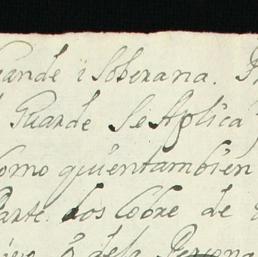 ande i Soberana.
Guarde Se Aplica
como quien tambien
Parte los Cobre de
o dela Persona